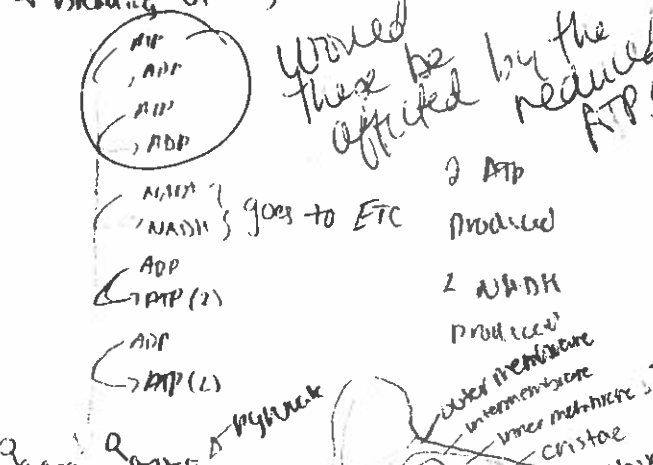 ATP
ADP
ATP
ADP
would
these be
affected by the
reduced
ATP?
NAD+
NADH } goes to ETC
2 ATP
produced
ADP
ATP (2)
2 NADH
produced
ADP
ATP (2)
pyruvate
outer membrane
intermembrane
inner membrane
cristae